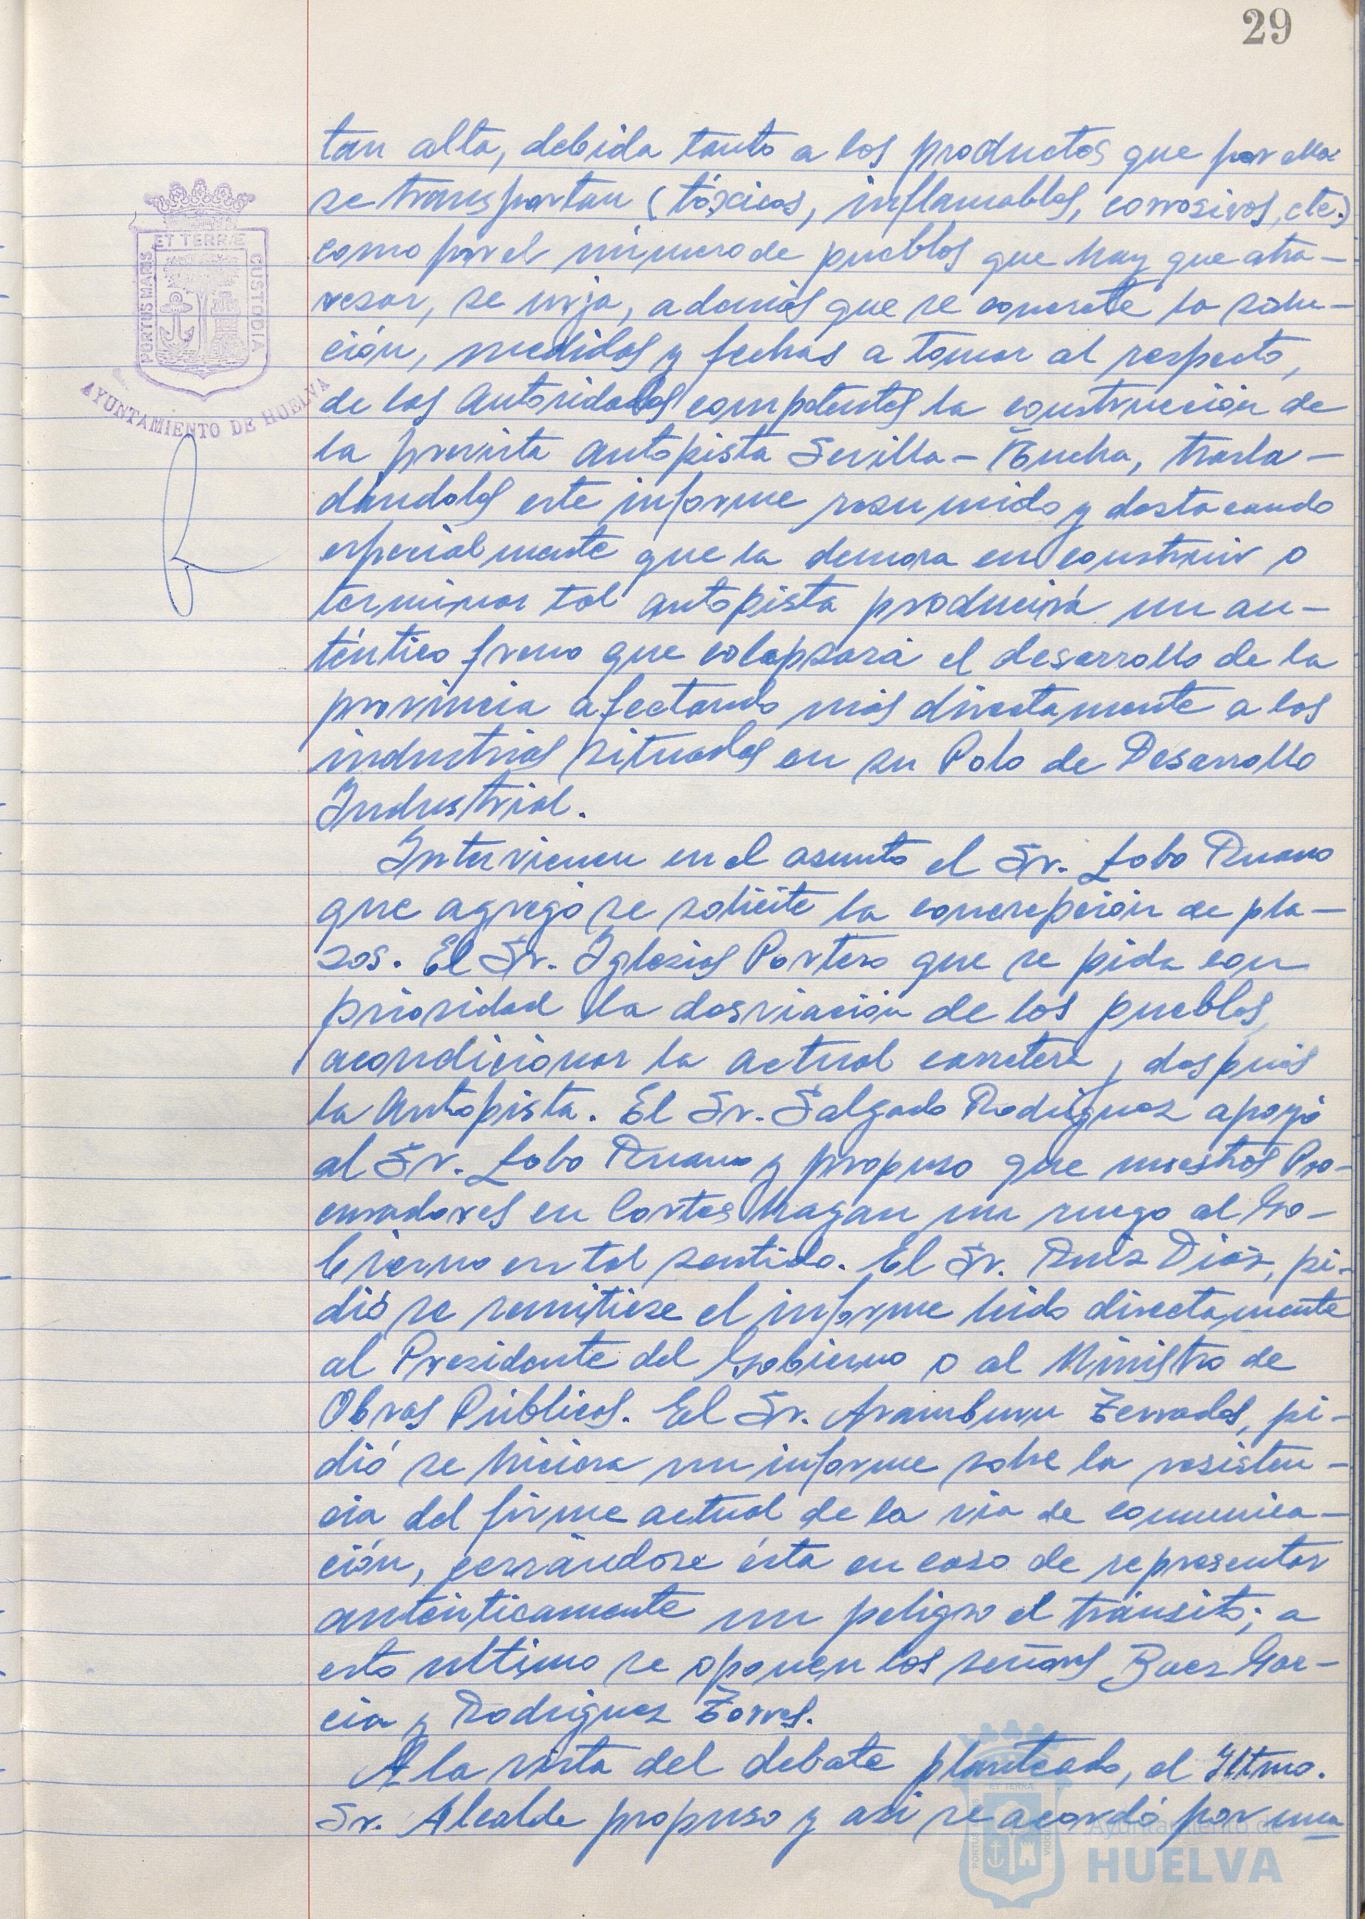 29
tan alta, debida tanto a los productos que por ella
se transportan (tóxicos, inflamables, corrosivos, etc.)
como por el número de pueblos que hay que atra-
vesar, se urja, además que se concrete la solu-
ción, medidas y fechas a tomar al respecto,
de las Autoridades competentes la construcción de
la prevista Autopista Sevilla-Huelva, trasla-
dándoles este informe resumido y destacando
especialmente que la demora en construir o
terminar tal autopista producirá un au-
téntico freno que colapsará el desarrollo de la
provincia afectando más directamente a las
industrias situadas en su Polo de Desarrollo
Industrial.
Intervienen en el asunto el Sr. Lobo Ruano
que agregó se solicite la concrepción de pla-
zos. El Sr. Iglesias Portero que se pida con
prioridad la desviación de los pueblos,
acondicionar la actual carretera, después
la Autopista. El Sr. Salgado Rodríguez apoyó
al Sr. Lobo Ruano y propuso que nuestros Pro-
curadores en Cortes hagan un ruego al Go-
bierno en tal sentido. El Sr. Ruíz Díaz, pi-
dió se remitiese el informe leido directamente
al Presidente del Gobierno o al Ministro de
Obras Públicas. El Sr. Aramburu Terrades, pi-
dió se hiciera un informe sobre la resisten-
cia del firme actual de la via de comunica-
ción, cerrándose ésta en caso de representar
auténticamente un peligro el tránsito; a
esto ultimo se oponen los señores Baez Gar-
cia y Rodriguez Torres.
A la vista del debate planteado, el Iltmo.
Sr. Alcalde propuso y asi se acordó por una
PORTUS MARIS
ET TERRÆ
CUSTODIA
AYUNTAMIENTO DE HUELVA
Ayuntamiento de
HUELVA